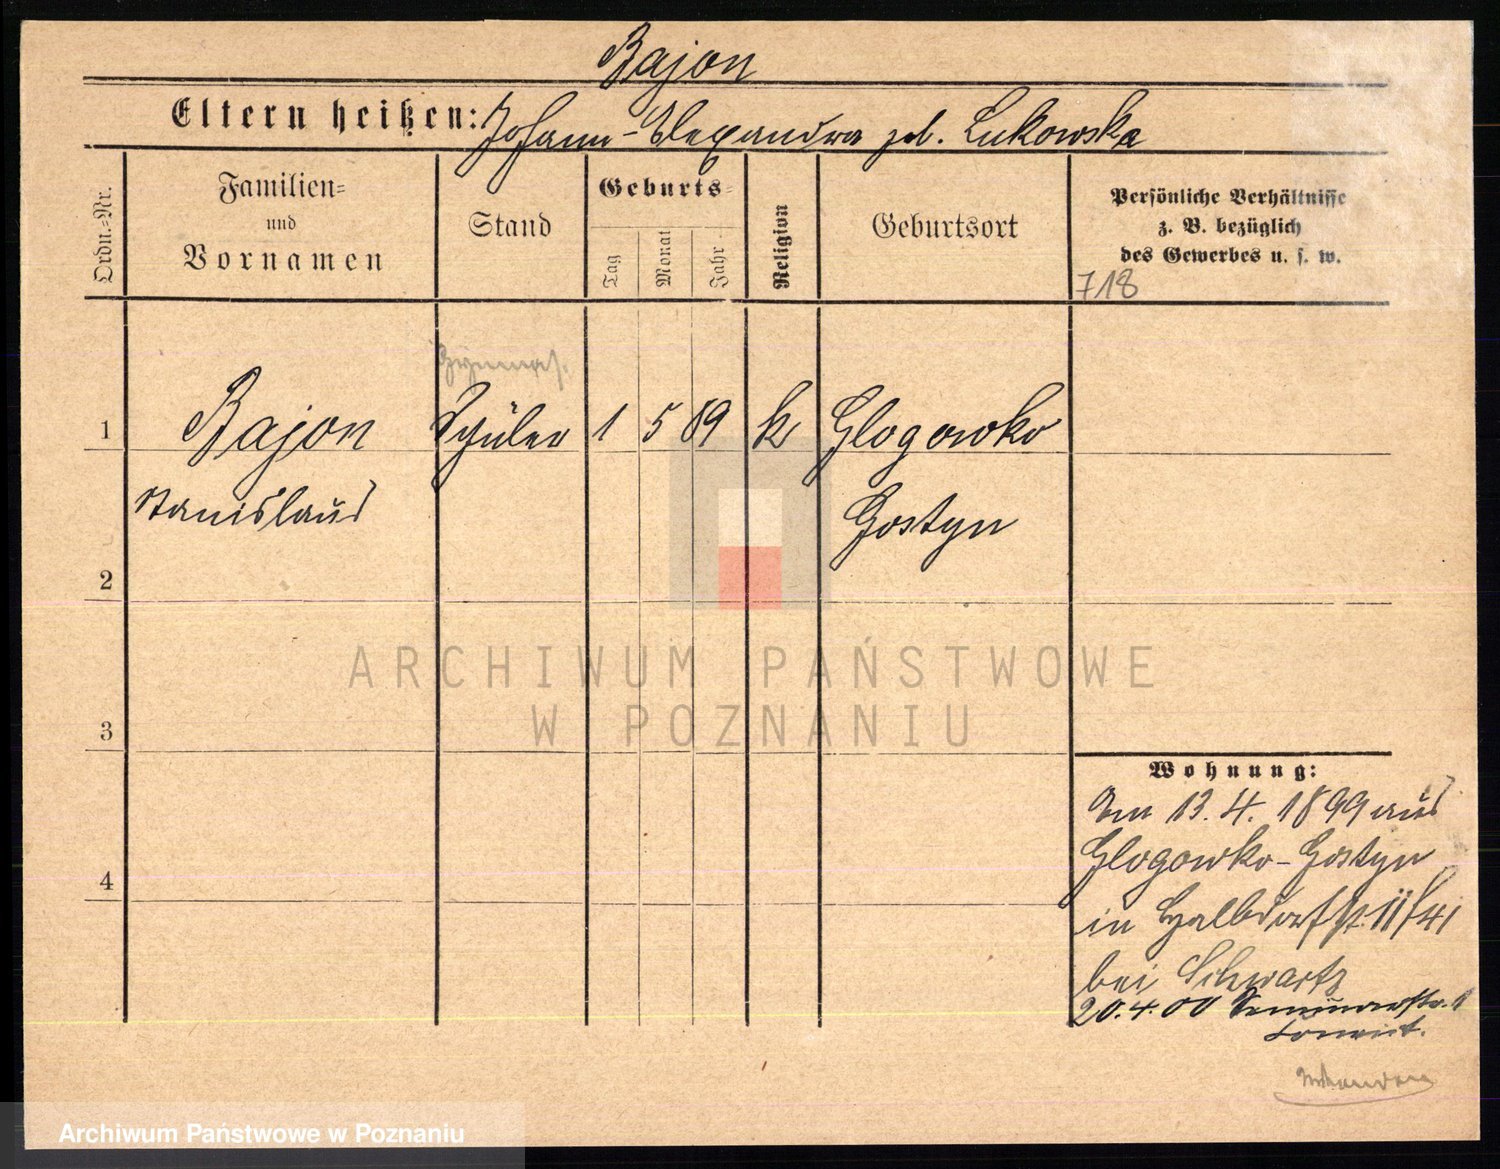 Bajon
Eltern heißen: Johann - Alexandra geb. Lukowska
Ordn.=Nr.
Familien=
und
Vornamen
Stand
Geburts=
Tag
Monat
Jahr
Religion
Geburtsort
Persönliche Verhältnisse
z. B. bezüglich
des Gewerbes u. s. w.
718
Gymnas.
1 Bajon Schüler 1 5 89 k Glogowko
Stanislaus Gostyn
2
ARCHIWUM PAŃSTWOWE
W POZNANIU
3
Wohnung:
Am 13.4.1899 aus
Glogowko - Gostyn
4
in Halbdorfstr.
bei Schwartz
20.4.00 Seminarstr. 1
Archiwum Państwowe w Poznaniu